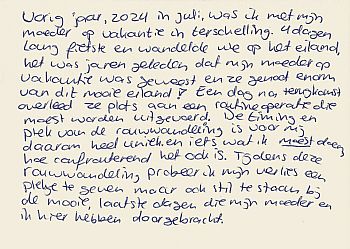 Vorig jaar, 2024 in juli, was ik met mijn
moeder op vakantie in terschelling. 4 dagen
lang fietste en wandelde we op het eiland,
het was jaren geleden dat mijn moeder op
vakantie was geweest en ze genoot enorm
van dit mooie eiland! Een dag na, terugkomst
overleed ze plots aan een routine operatie die
moest worden uitgevoerd. De timing en
plek van de rouwwandeling is voor mij
daarom heel uniek en iets wat ik moest doen,
hoe confronterend het ook is. Tijdens deze
rouwwandeling probeer ik mijn verlies een
plekje te geven maar ook stil te staan bij
de mooie, laatste dagen die mijn moeder en
ik hier hebben doorgebracht.